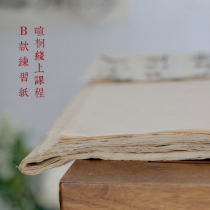 喧桐綫上課程
B款練習紙